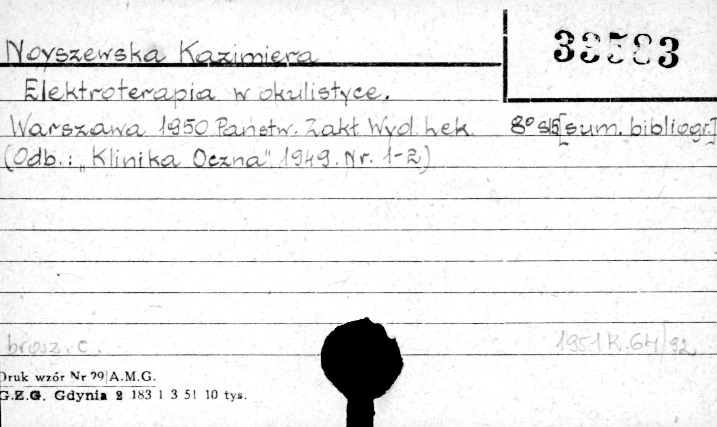 Noyszewska Kazimiera
33583
Elektroterapia w okulistyce.
Warszawa 1950 Państw. Zakł. Wyd. Lek. 8° s15 [sum. bibliogr.]
(Odb.: „Klinika Oczna" 1949. Nr. 1-2)
brosz. c. 1951 K. 64/92
Druk wzór Nr 29 A.M.G.
G.Z.G. Gdynia 2 183 1 3 51 10 tys.